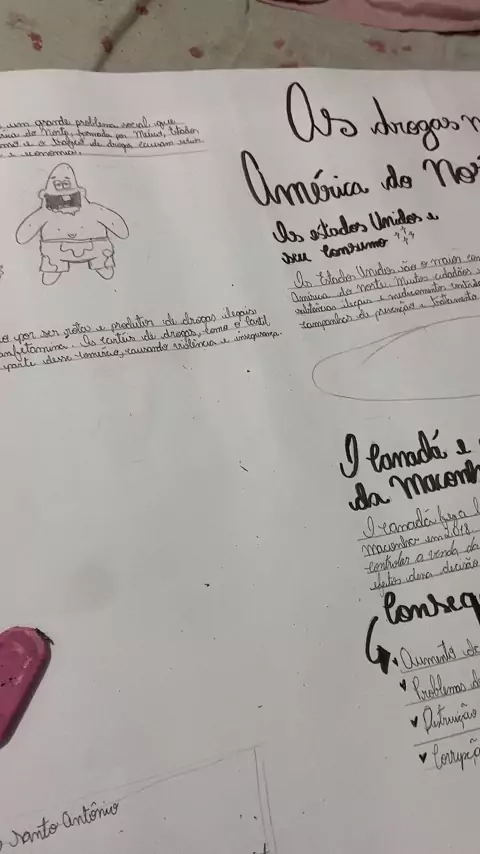 um grande problema social que
do Norte, formada por México, Estados
e o tráfico de droga causam
e economica.
As drogas n
América do Nor
Os estados Unidos e
seu consumo
Os Estados Unidos são o maior con
América do norte. Muitos cidadãos
substâncias ilegais e medicamentos
campanhas de prevenção e tratamento
por ser rotas e produtor de drogas ilegais
anfetamina. Os cartéis de drogas, como o Cartel
parte desse comércio, causando violência e insegurança.
O Canadá e
da Maconh
O canadá
maconha em 2018.
controlar a venda da
efeitos dessa decisão
Conseq
Aumento de
Problemas de
Distruição
Corrupçã
santo Antônio